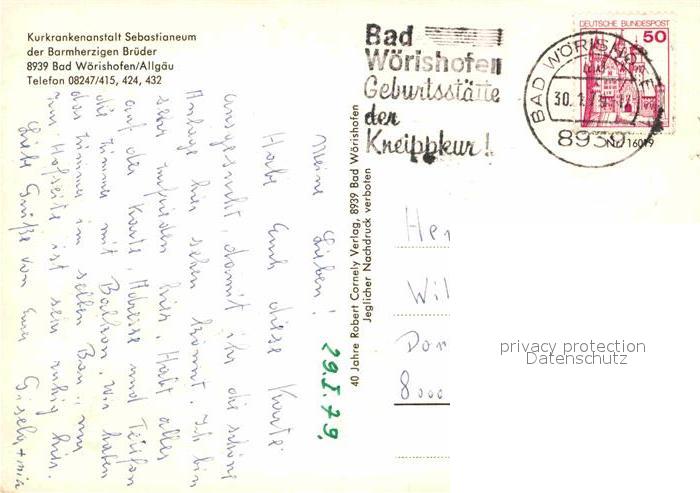 Kurkrankenanstalt Sebastianeum
der Barmherzigen Brüder
8939 Bad Wörishofen/Allgäu
Telefon 08247/415, 424, 432
Bad
Wörishofen
Geburtsstätte
der
Kneippkur!
DEUTSCHE BUNDESPOST
50
BAD WÖRISHOFEN
30. 1. 7
8939
Nr. 16019
40 Jahre Robert Cornely Verlag, 8939 Bad Wörishofen
Jeglicher Nachdruck verboten
29.I.79,
Meine Lieben!
Habe Euch diese Karte
ausgesucht, damit ihr die schöne
Anlage hier sehen könnt. Ich bin
sehr zufrieden hier. Habt alles
auf der Karte, Adresse und Telefon
die Zimmer mit Balkon. Wir haben
das Zimmer im selben Bau, nur
zur Hofseite ist sehr ruhig hier.
Liebe Grüße von Eurer Gisela +
Her
Wil
Dor
8000
privacy protection
Datenschutz